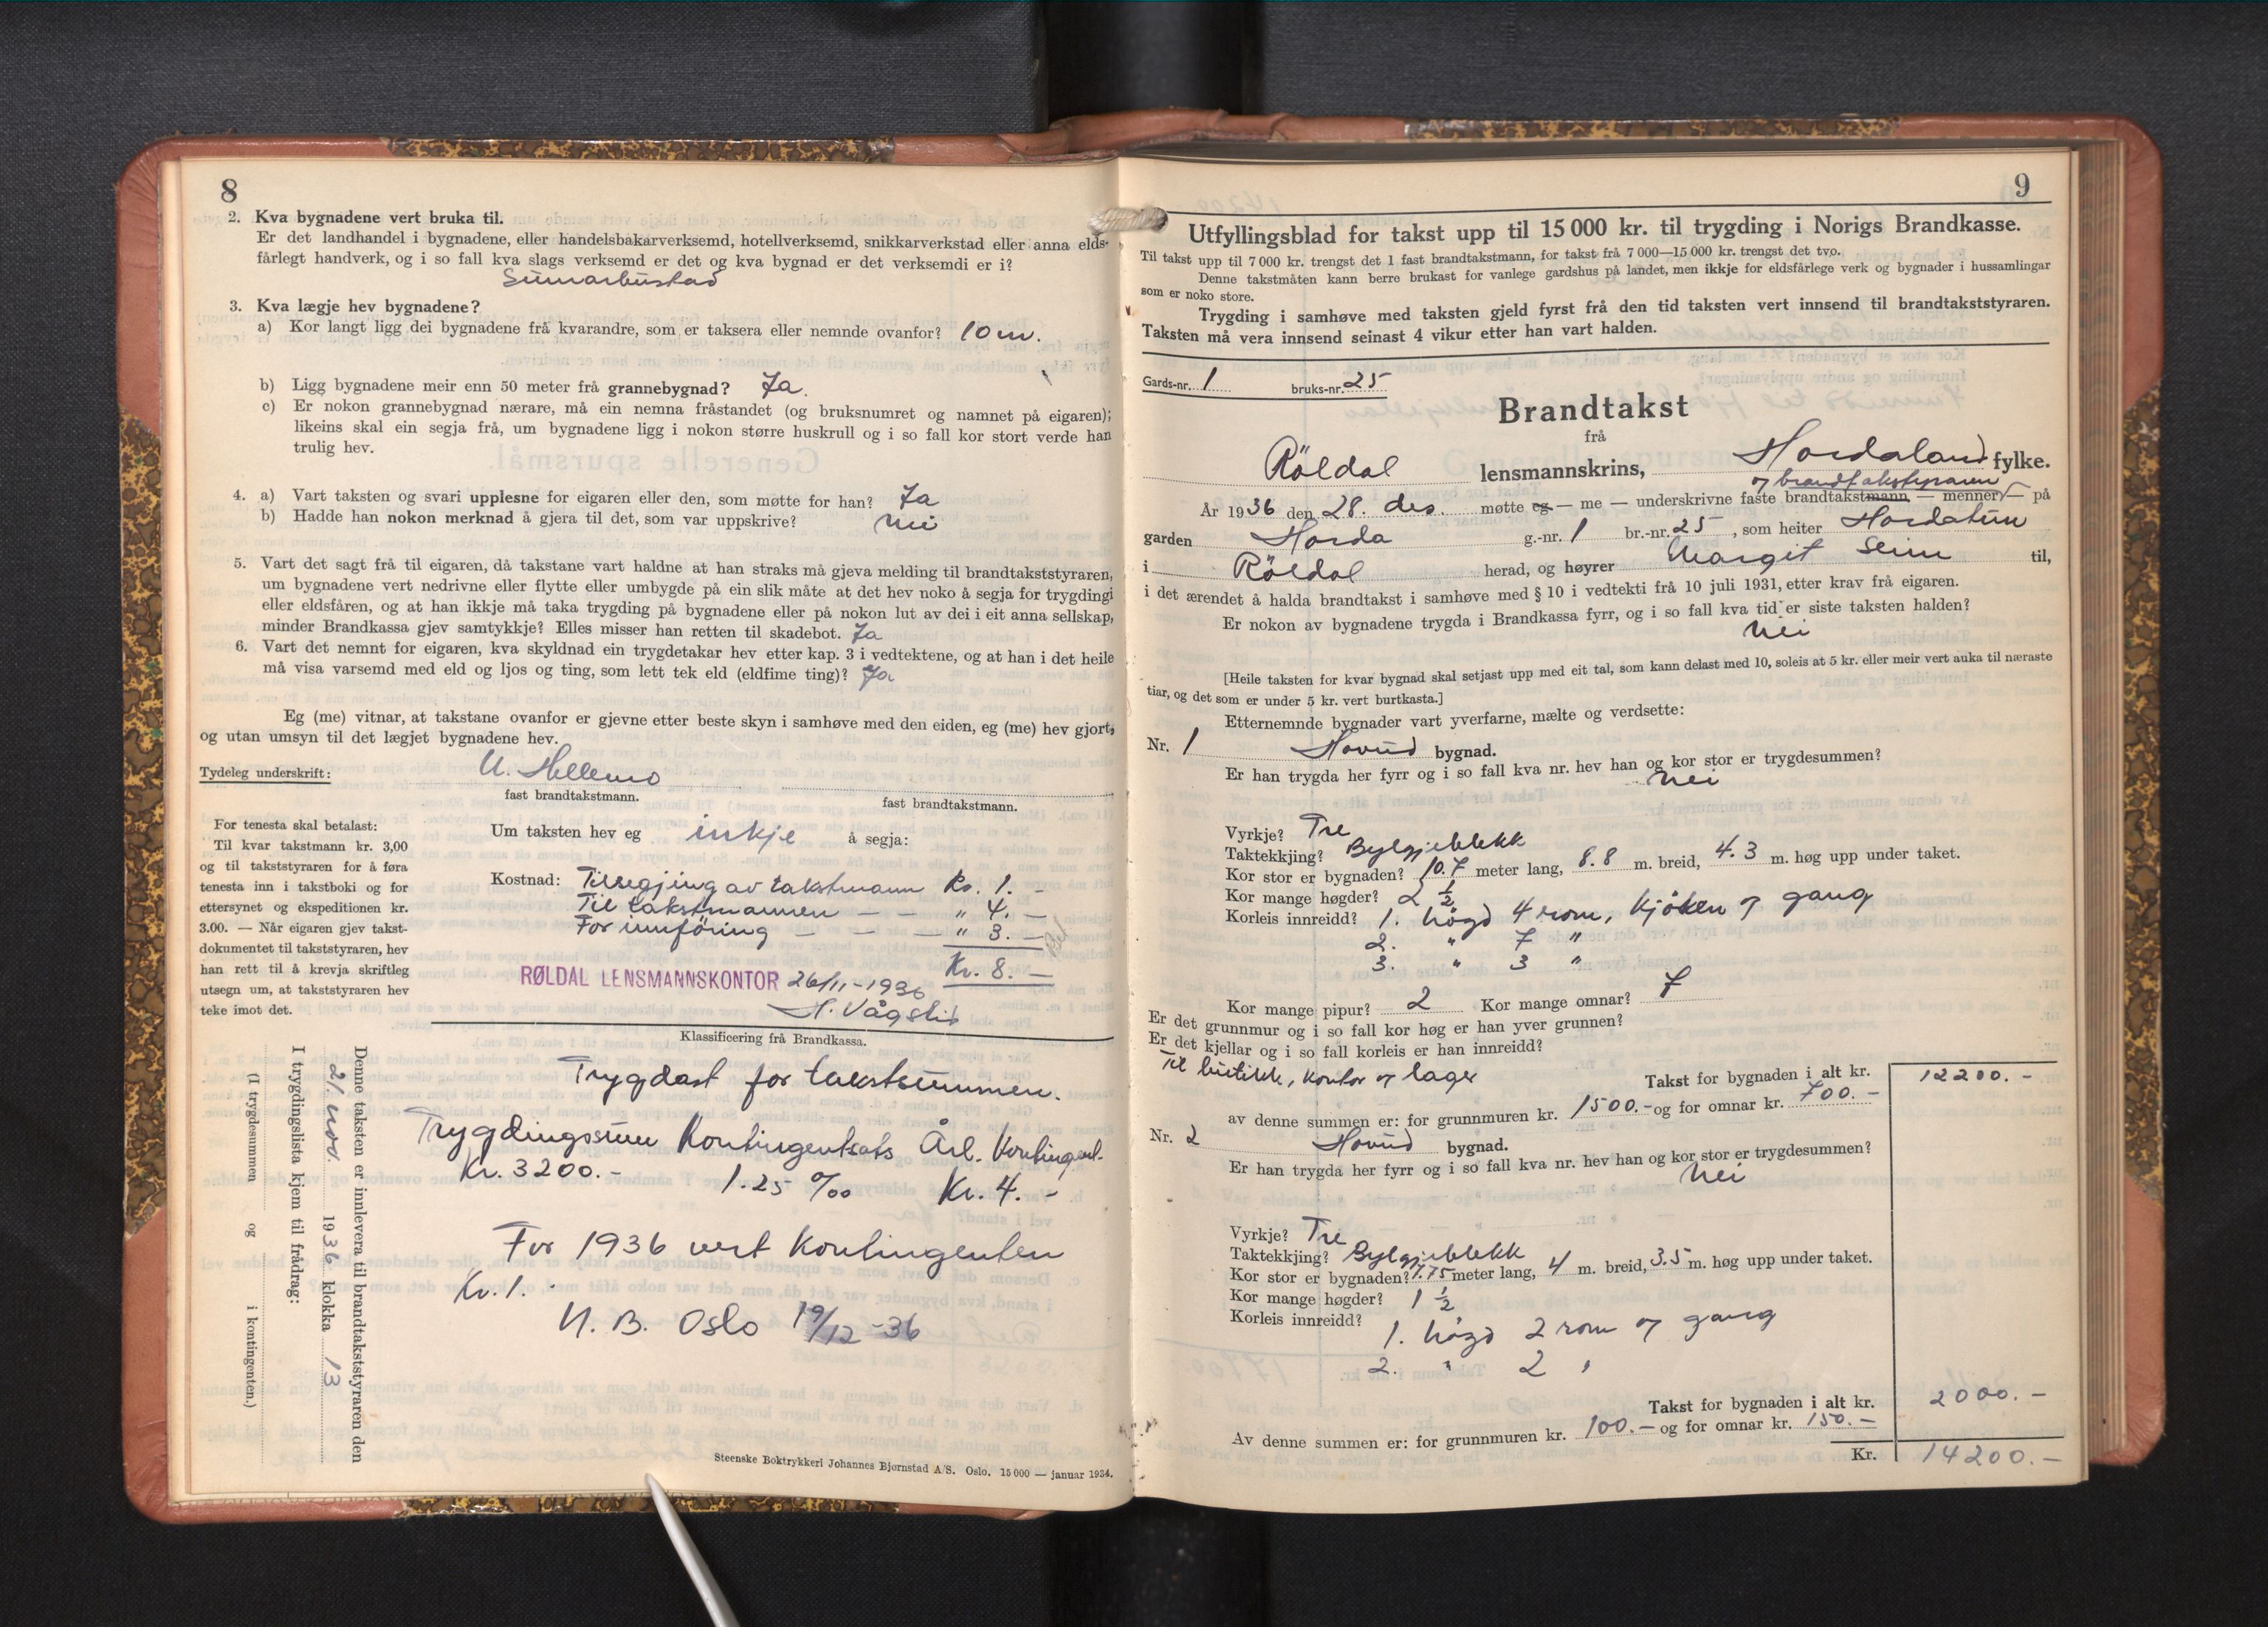 8
2. Kva bygnadene vert bruka til.
Er det landhandel i bygnadene, eller handelsbakarverksemd, hotellverksemd, snikkarverkstad eller anna elds-
fårlegt handverk, og i so fall kva slags verksemd er det og kva bygnad er det verksemdi er i?
Sumarbustad
3. Kva lægje hev bygnadene?
a) Kor langt ligg dei bygnadene frå kvarandre, som er taksera eller nemnde ovanfor? 10 m.
b) Ligg bygnadene meir enn 50 meter frå grannebygnad? Ja.
c) Er nokon grannebygnad nærare, må ein nemna fråstandet (og bruksnumret og namnet på eigaren);
likeins skal ein segja frå, um bygnadene ligg i nokon større huskrull og i so fall kor stort verde han
trulig hev.
4. a) Vart taksten og svari upplesne for eigaren eller den, som møtte for han? Ja
b) Hadde han nokon merknad å gjera til det, som var uppskrive? Nei
5. Vart det sagt frå til eigaren, då takstane vart haldne at han straks må gjeva melding til brandtakststyraren,
um bygnadene vert nedrivne eller flytte eller umbygde på ein slik måte at det hev noko å segja for trygdingi
eller eldsfåren, og at han ikkje må taka trygding på bygnadene eller på nokon lut av dei i eit anna sellskap,
minder Brandkassa gjev samtykkje? Elles misser han retten til skadebot. Ja
6. Vart det nemnt for eigaren, kva skyldnad ein trygdetakar hev etter kap. 3 i vedtektene, og at han i det heile
må visa varsemd med eld og ljos og ting, som lett tek eld (eldfime ting)? Ja
Eg (me) vitnar, at takstane ovanfor er gjevne etter beste skyn i samhøve med den eiden, eg (me) hev gjort,
og utan umsyn til det lægjet bygnadene hev.
Tydeleg underskrift: U. Hellemo
fast brandtakstmann. fast brandtakstmann.
For tenesta skal betalast:
Til kvar takstmann kr. 3,00
og til takststyraren for å føra
tenesta inn i takstboki og for
ettersynet og ekspeditionen kr.
3.00. — Når eigaren gjev takst-
dokumentet til takststyraren, hev
han rett til å krevja skriftleg
utsegn um, at takststyraren hev
teke imot det.
Um taksten hev eg inkje å segja:
Kostnad: Tilsegjing av takstmann Kr. 1. -
Til takstmannen — — " 4. —
For innföring — — — " 3. —
Kr. 8. —
RØLDAL LENSMANNSKONTOR 26/11-1936
H. Vågslid
Klassificering frå Brandkassa.
Trygdast for takstsummen.
Trygdingssum Kontingentsats Årl. Kontingent.
Kr. 3200.- 1.25 ‰ Kr. 4. -
For 1936 vert Kontingenten
Kr. 1. -
N. B. Oslo 19/12-36
Denne taksten er innlevera til brandtakststyraren den
21. nov. 1936 klokka 13
I trygdingslista kjem til frådrag:
(I trygdesummen og i kontingenten.)
Steenske Boktrykkeri Johannes Bjørnstad A/S. Oslo. 15 000 — januar 1934.
9
Utfyllingsblad for takst upp til 15 000 kr. til trygding i Norigs Brandkasse.
Til takst upp til 7 000 kr. trengst det 1 fast brandtakstmann, for takst frå 7 000—15 000 kr. trengst det tvo.
Denne takstmåten kann berre brukast for vanlege gardshus på landet, men ikkje for eldsfårlege verk og bygnader i hussamlingar
som er noko store.
Trygding i samhøve med taksten gjeld fyrst frå den tid taksten vert innsend til brandtakststyraren.
Taksten må vera innsend seinast 4 vikur etter han vart halden.
Gards-nr. 1 bruks-nr. 25
Brandtakst
frå
Röldal lensmannskrins, Hordaland fylke.
og brandtakstsyraren
År 1936 den 28. des. møtte eg — me — underskrivne faste brandtakstmann — menner — på
garden Horda g.-nr. 1 br.-nr. 25, som heiter Hordatun
i Röldal herad, og høyrer Margit Seim til,
i det ærendet å halda brandtakst i samhøve med § 10 i vedtekti frå 10 juli 1931, etter krav frå eigaren.
Er nokon av bygnadene trygda i Brandkassa fyrr, og i so fall kva tid er siste taksten halden?
Nei
[Heile taksten for kvar bygnad skal setjast upp med eit tal, som kann delast med 10, soleis at 5 kr. eller meir vert auka til næraste
tiar, og det som er under 5 kr. vert burtkasta.]
Etternemnde bygnader vart yverfarne, mælte og verdsette:
Nr. 1 Hovud bygnad.
Er han trygda her fyrr og i so fall kva nr. hev han og kor stor er trygdesummen?
Nei
Vyrkje? Tre
Taktekkjing? Bylgjeblekk
Kor stor er bygnaden? 10.7 meter lang, 8.8 m. breid, 4.3 m. høg upp under taket.
Kor mange høgder? 2 ½
Korleis innreidd? 1. högd 4 rom, kjöken og gang
2. " 7 "
3. " 3 "
Kor mange pipur? 2 Kor mange omnar? 7
Er det grunnmur og i so fall kor høg er han yver grunnen?
Er det kjellar og i so fall korleis er han innreidd?
Til butikk, kontor og lager
Takst for bygnaden i alt kr. 12200. -
av denne summen er: for grunnmuren kr. 1500.- og for omnar kr. 700. -
Nr. 2 Hovud bygnad.
Er han trygda her fyrr og i so fall kva nr. hev han og kor stor er trygdesummen?
Nei
Vyrkje? Tre
Taktekkjing? Bylgjeblekk
Kor stor er bygnaden? 7.75 meter lang, 4 m. breid, 3.5 m. høg upp under taket.
Kor mange høgder? 1 ½
Korleis innreidd?
1. högd 2 rom og gang
2. " 2 "
Takst for bygnaden i alt kr. 2000. -
Av denne summen er: for grunnmuren kr. 100. - og for omnar kr. 150. -
Kr. 14200. -